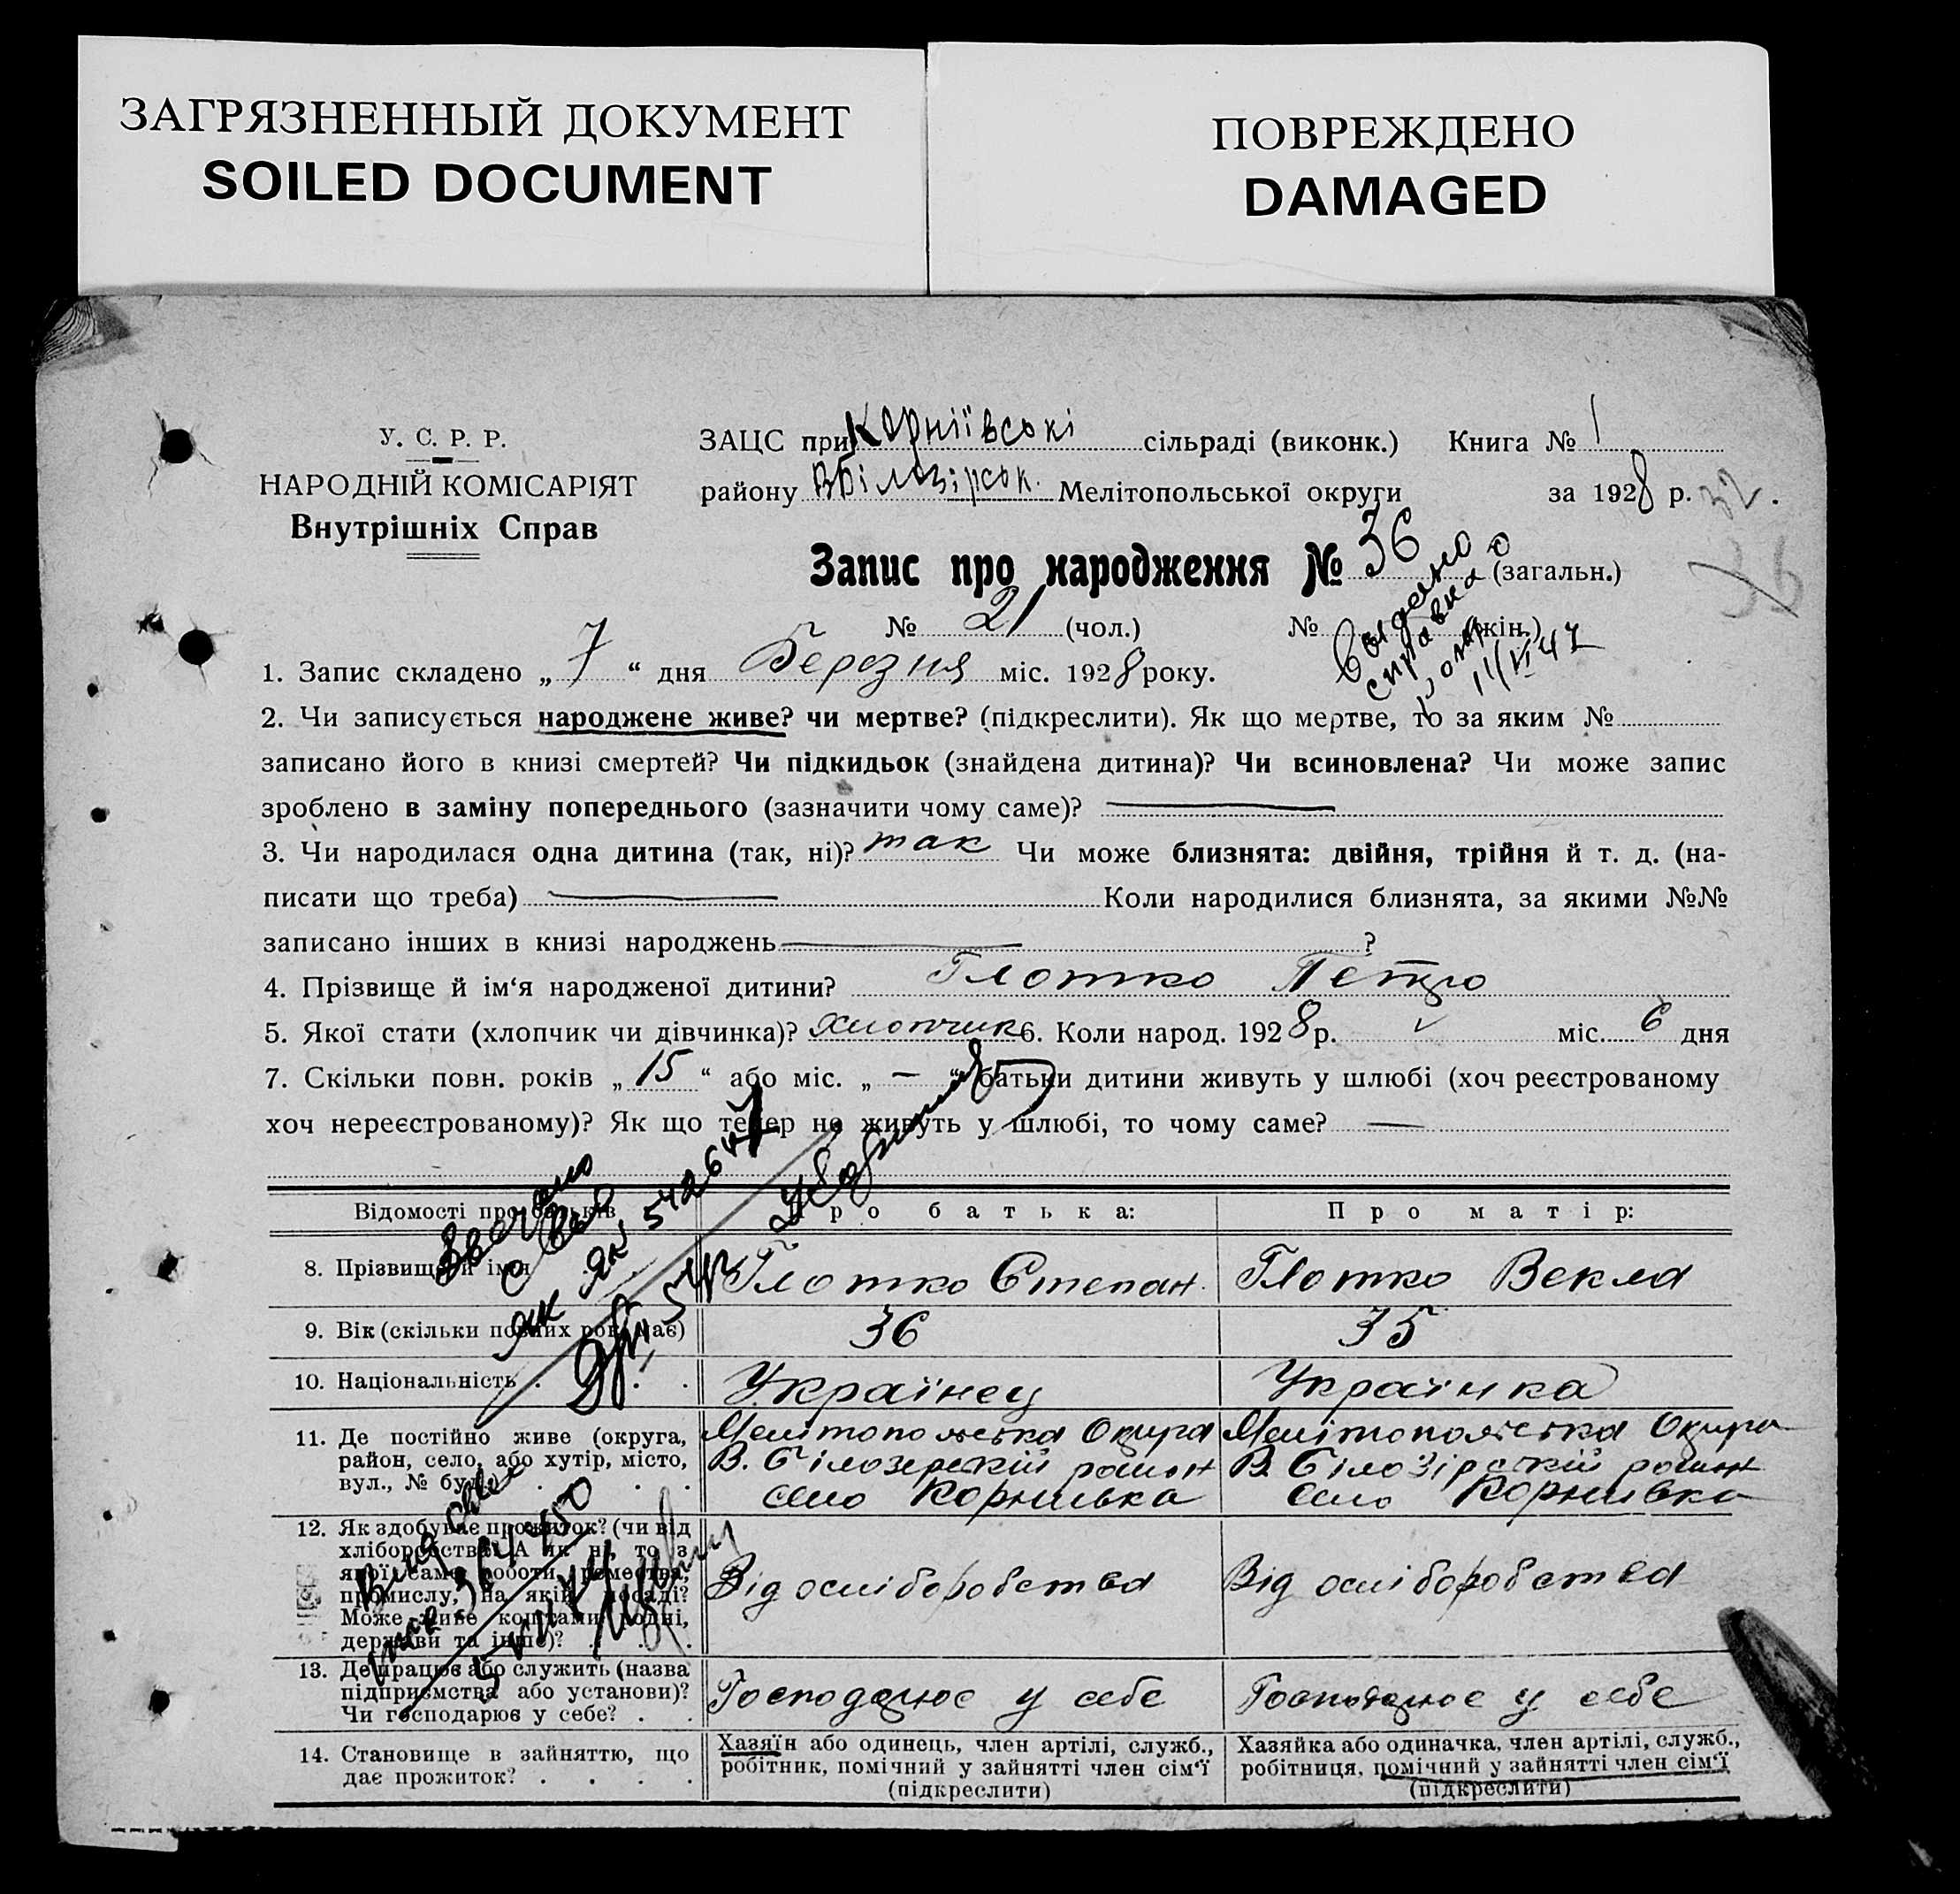 ЗАГРЯЗНЕННЫЙ ДОКУМЕНТ
SOILED DOCUMENT
ПОВРЕЖДЕНО
DAMAGED
У. С. Р. Р.
НАРОДНІЙ КОМІСАРІЯТ
Внутрішніх Справ
ЗАЦС при Корніївські сільраді (виконк.) Книга № 1
району ВБілозірськ. Мелітопольської округи за 1928 р. 32
Запис про народження № 36 (загальн.)
№ 21 (чол.) № (жін.)
Выдано
справка о
11/VI 47
1. Запис складено „ 7 “ дня Березня міс. 1928 року.
2. Чи записується народжене живе? чи мертве? (підкреслити). Як що мертве, то за яким №
записано його в книзі смертей? Чи підкидьок (знайдена дитина)? Чи всиновлена? Чи може запис
зроблено в заміну попереднього (зазначити чому саме)?
3. Чи народилася одна дитина (так, ні)? так Чи може близнята: двійня, трійня й т. д. (на-
писати що треба) Коли народилися близнята, за якими №№
записано інших в книзі народжень ?
4. Прізвище й ім‘я народженої дитини? Глотко Петро
5. Якої стати (хлопчик чи дівчинка)? хлопчик 6. Коли народ. 1928 р. міс. 6 дня
7. Скільки повн. років „ 15 “ або міс. „ — “ батьки дитини живуть у шлюбі (хоч реєстрованому
хоч нереєстрованому)? Як що тепер не живуть у шлюбі, то чому саме? —
Відомості про батьків Про батька: Про матір:
8. Прізвище й імя Глотко Степан Глотко Векла
9. Вік (скільки повних років має) 36 35
10. Національність . . . Українец Українка
11. Де постійно живе (округа, район, село, або хутір, місто, вул., № буд.)
Мелітопольська Округа Мелітопольська Округа
В. Білозерский район В. Білозірский район
село Корнивка село Корнивка
12. Як здобуває прожиток? (чи від
хліборобства? А як ні, то з
якої саме роботи, ремества,
промислу, на якій посаді?
Може живе коштами родні,
держави та інше)?
Від осліборобства Від осліборобства
13. Де працює або служить (назва
підприємства або установи)?
Чи господарює у себе? .
Господарює у себе Господарює у себе
14. Становище в зайняттю, що
дає прожиток? . . . .
Хазяїн або одинець, член артілі, служб.,
робітник, помічний у зайнятті член сім‘ї
(підкреслити)
Хазяйка або одиначка, член артілі, служб.,
робітниця, помічний у зайнятті член сім‘ї
(підкреслити)